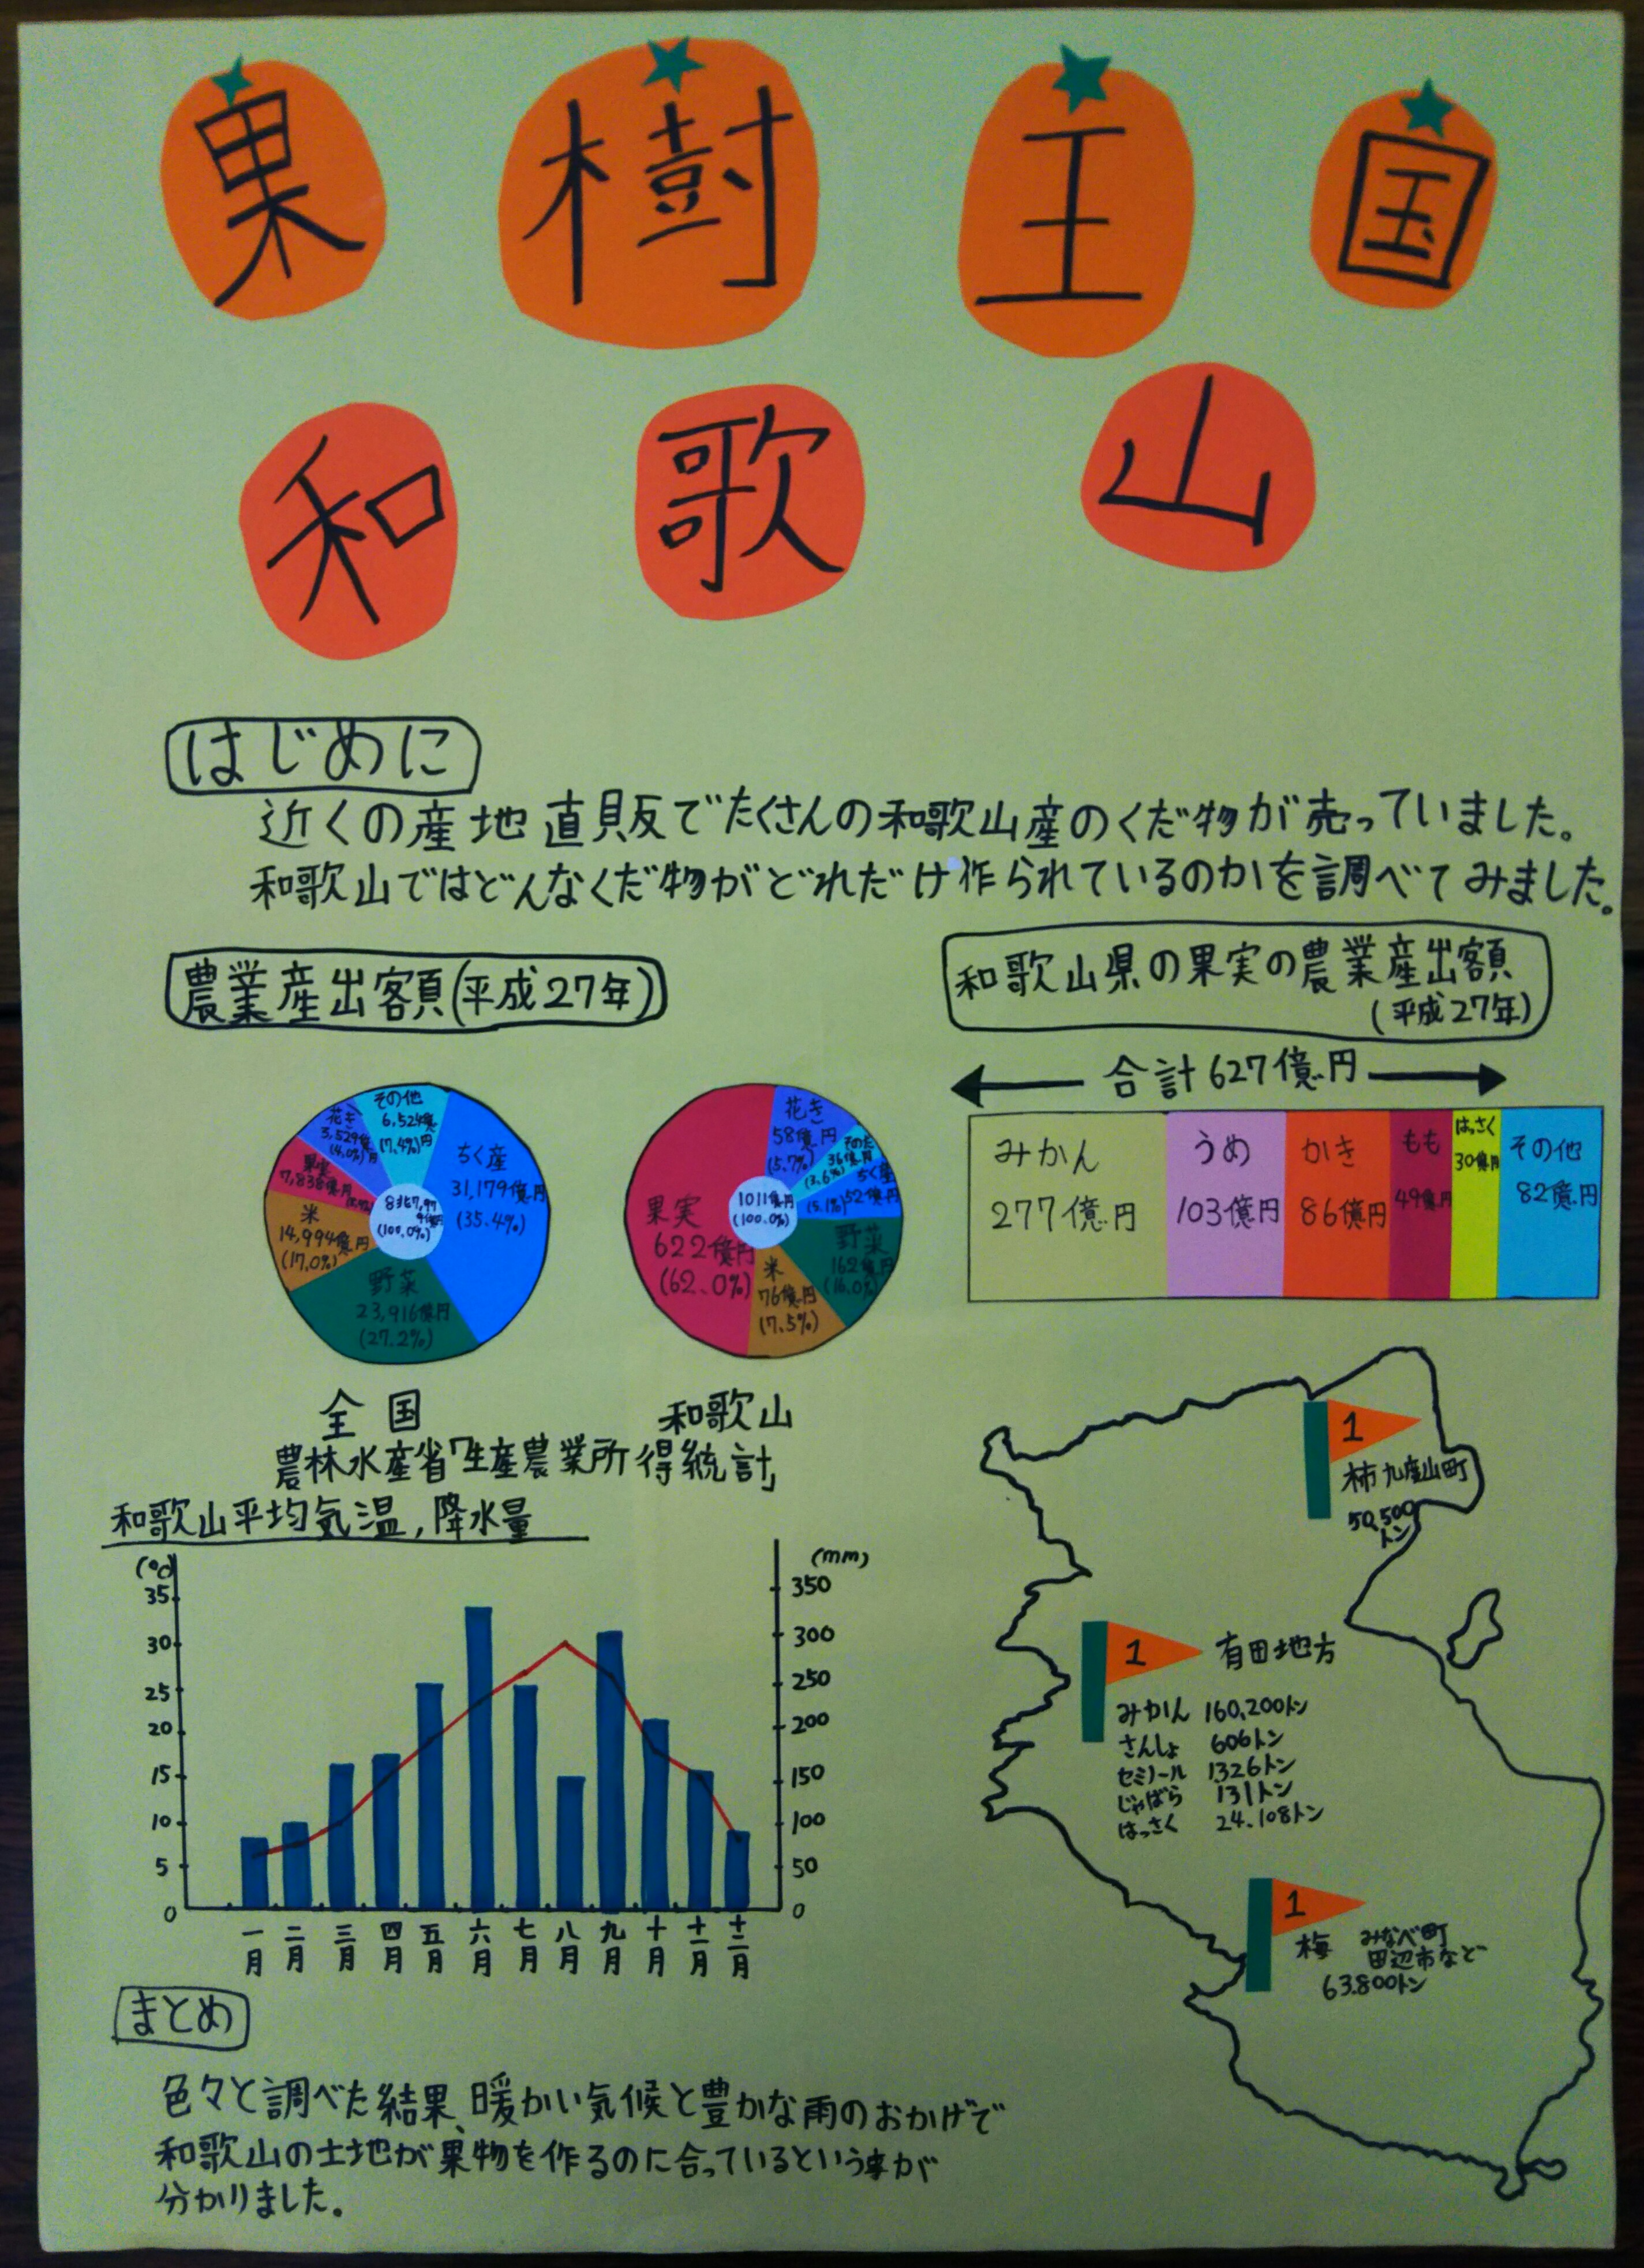 果樹王国
和歌山
はじめに
近くの産地直販でたくさんの和歌山産のくだ物が売っていました。
和歌山ではどんなくだ物がどれだけ作られているのかを調べてみました。
農業産出額(平成27年)
その他
6,524億円
(7.4%)
花き
3,529億円
(4.0%)
果実
7,838億円
米
14,994億円
(17.0%)
野菜
23,916億円
(27.2%)
ちく産
31,179億円
(35.4%)
(100.0%)
全国
花き
58億円
(5.7%)
その他
36億円
(3.6%)
ちく産
52億円
(5.1%)
野菜
162億円
(16.0%)
米
76億円
(7.5%)
果実
622億円
(62.0%)
1011億円
(100.0%)
和歌山
農林水産省「生産農業所得統計」
和歌山県の果実の農業産出額
(平成27年)
合計627億円
みかん
277億円
うめ
103億円
かき
86億円
もも
49億円
はっさく
30億円
その他
82億円
和歌山平均気温,降水量
(℃)
35
30
25
20
15
10
5
0
(mm)
350
300
250
200
150
100
50
0
一月 二月 三月 四月 五月 六月 七月 八月 九月 十月 十一月 十二月
1
柿 九度山町
50,500
トン
1
有田地方
みかん 160,200トン
さんしょ 606トン
セミノール 1326トン
じゃばら 131トン
はっさく 24.108トン
1
梅 みなべ町
田辺市など
63.800トン
まとめ
色々と調べた結果、暖かい気候と豊かな雨のおかげで
和歌山の土地が果物を作るのに合っているという事が
分かりました。